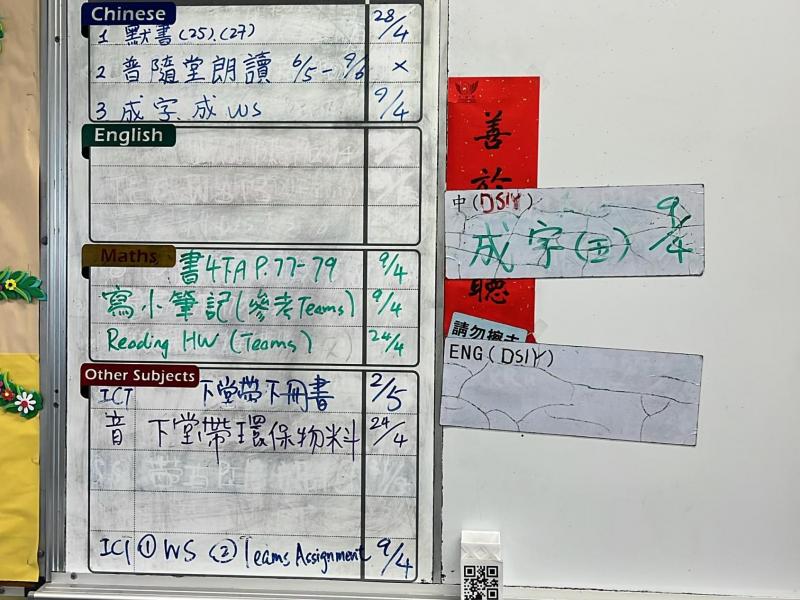 Chinese
1 默書(25).(27) 28/4
2 普隨堂朗讀 6/5-9/6 ×
3 成字.成WS 9/4
English
Maths
書4TA P.77-79 9/4
寫小筆記(參考Teams) 9/4
Reading HW (Teams) 24/4
Other Subjects
ICT 下堂帶下冊書 2/5
音 下堂帶環保物料 24/4
ICT ① WS ② Teams Assignment 9/4
善於
聽
中(DSIY)
成字(五) 9/4
請勿擦去
ENG(DSIY)